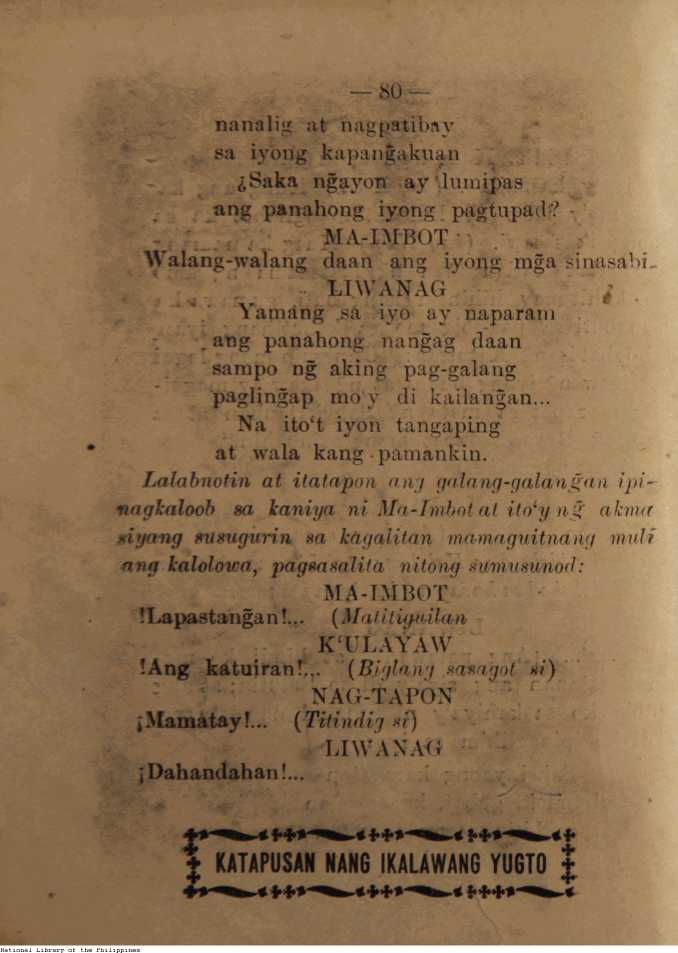 — 80 —
nanalig at nagpatibay
sa iyong kapang̃akuan
¿Saka ng̃ayon ay lumipas
ang panahong iyong pagtupad?
MA-IMBOT
Walang-walang daan ang iyong mg̃a sinasabi.
LIWANAG
Yamang sa iyo ay naparam
ang panahong nang̃ag daan
sampo ng̃ aking pag-galang
pagling̃ap mo'y di kailang̃an...
Na ito‘t iyon tangaping
at wala kang pamankin.
Lalabnotin at itatapon ang galang-galang̃an ipi-
nagkaloob sa kaniya ni Ma-Imbot at ito‘y ng̃ akma
siyang susugurin sa kagalitan mamaguitnang muli
ang kalolowa, pagsasalita nitong sumusunod:
MA-IMBOT
!Lapastang̃an!... (Matitiguilan
K‘ULAYAW
!Ang katuiran!... (Biglang sasagot si)
NAG-TAPON
¡Mamatay!... (Titindig si)
LIWANAG
¡Dahandahan!...
KATAPUSAN NANG IKALAWANG YUGTO
National Library of the Philippines